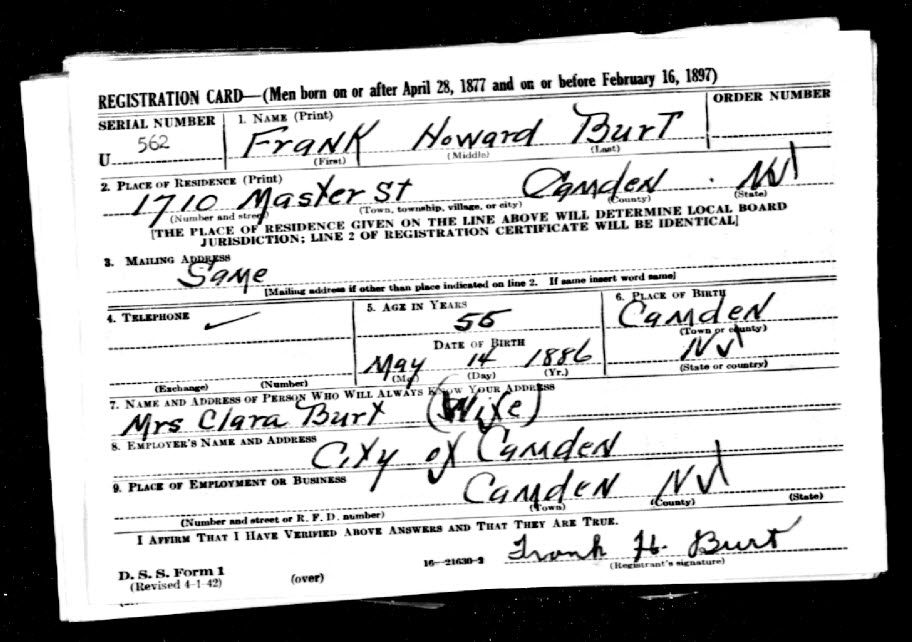 REGISTRATION CARD—(Men born on or after April 28, 1877 and on or before February 16, 1897)
SERIAL NUMBER
1. NAME (Print)
ORDER NUMBER
U 562
Frank Howard Burt
(First) (Middle) (Last)
2. PLACE OF RESIDENCE (Print)
1710 Master St Camden NJ
(Number and street) (Town, township, village, or city) (County) (State)
[THE PLACE OF RESIDENCE GIVEN ON THE LINE ABOVE WILL DETERMINE LOCAL BOARD
JURISDICTION; LINE 2 OF REGISTRATION CERTIFICATE WILL BE IDENTICAL]
3. MAILING ADDRESS
Same
[Mailing address if other than place indicated on line 2. If same insert word same]
4. TELEPHONE
5. AGE IN YEARS
6. PLACE OF BIRTH
55
Camden
(Town or county)
DATE OF BIRTH
NJ
May 14 1886
(Mo.) (Day) (Yr.)
(State or country)
(Exchange) (Number)
7. NAME AND ADDRESS OF PERSON WHO WILL ALWAYS KNOW YOUR ADDRESS
Mrs Clara Burt (Wife)
8. EMPLOYER'S NAME AND ADDRESS
City of Camden
9. PLACE OF EMPLOYMENT OR BUSINESS
Camden NJ
(Number and street or R. F. D. number) (Town) (County) (State)
I AFFIRM THAT I HAVE VERIFIED ABOVE ANSWERS AND THAT THEY ARE TRUE.
Frank H. Burt
D. S. S. Form 1
(Revised 4-1-42)
(over)
16—21630-2
(Registrant's signature)